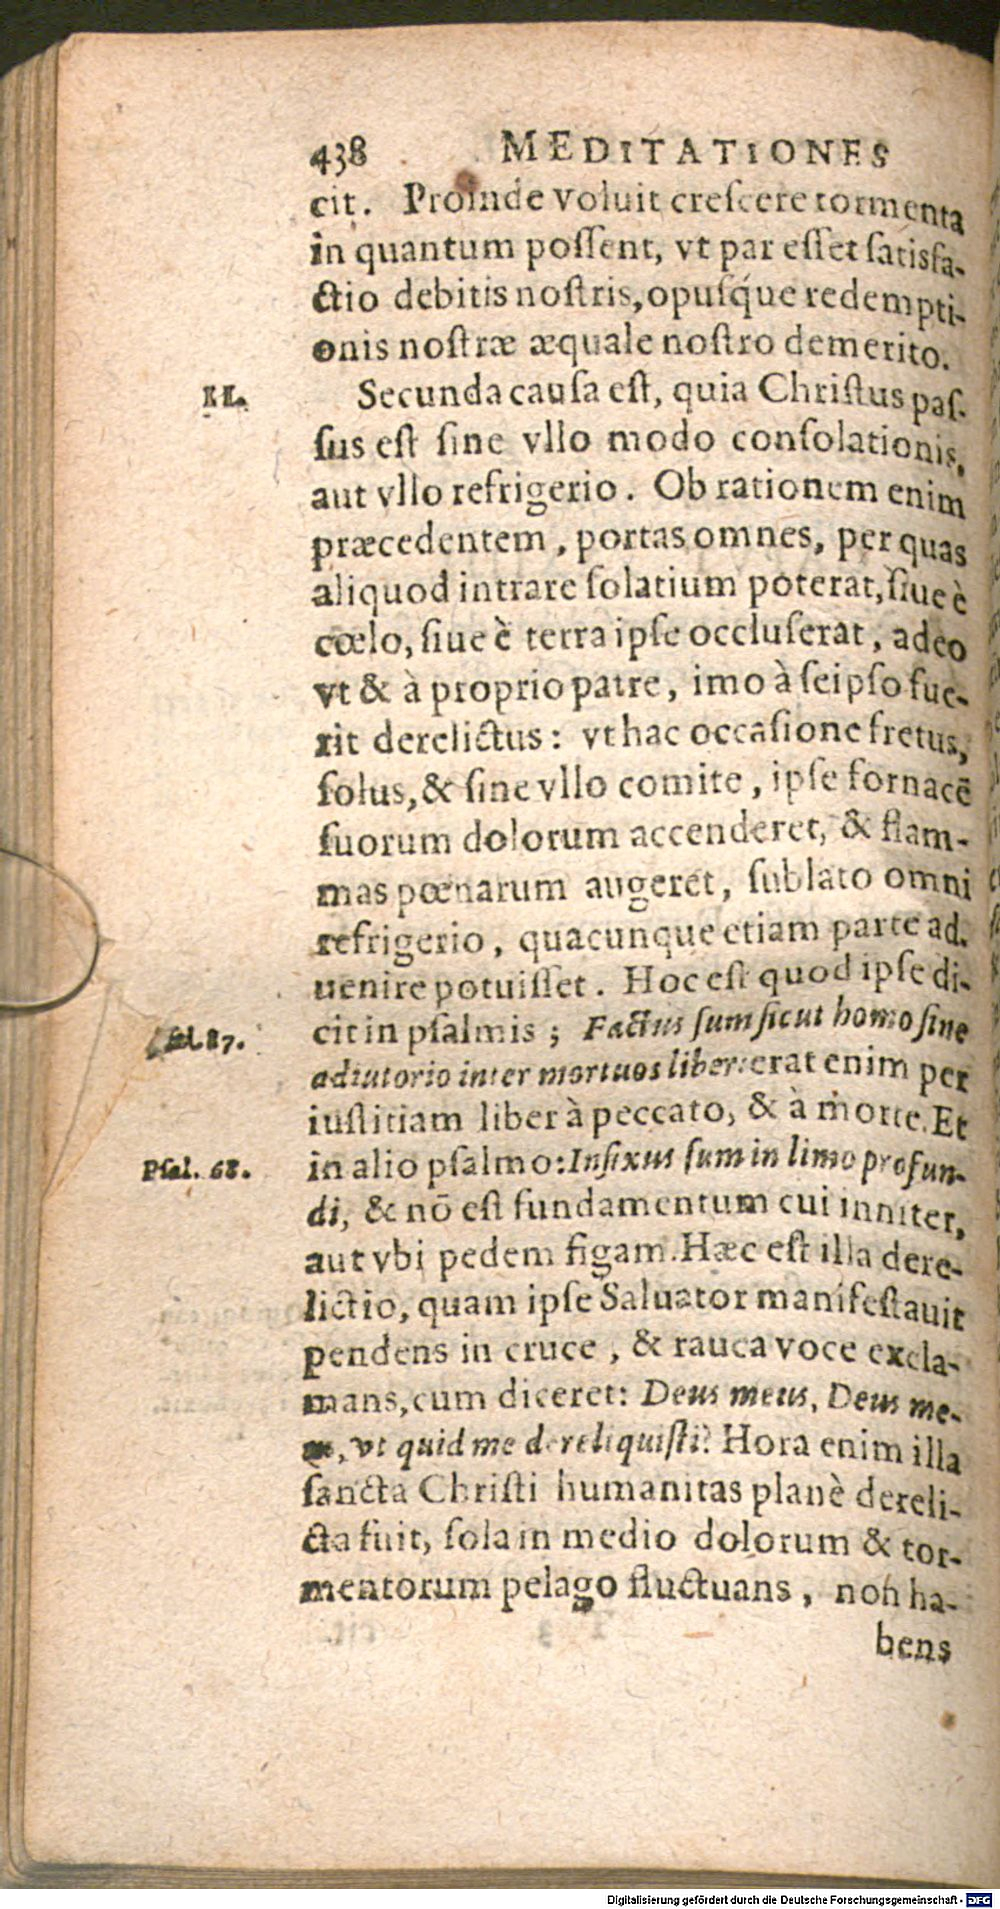 438 MEDITATIONES
cit. Proinde voluit creſcere tormenta
in quantum poſſent, vt par eſſet ſatisfa-
ctio debitis noſtris, opuſq́ue redempti-
onis noſtræ æquale noſtro demerito.
II. Secunda cauſa eſt, quia Chriſtus paſ-
ſus eſt ſine vllo modo conſolationis,
aut vllo refrigerio. Ob rationem enim
præcedentem, portas omnes, per quas
aliquod intrare ſolatium poterat, ſiue è
cœlo, ſiue è terra ipſe occluſerat, adeo
vt & à proprio patre, imo à ſeipſo fue-
rit derelictus: vt hac occaſione fretus,
ſolus, & ſine vllo comite, ipſe fornacē
ſuorum dolorum accenderet, & flam-
mas pœnarum augeret, ſublato omni
refrigerio, quacunque etiam parte ad-
uenire potuiſſet. Hoc eſt quod ipſe di-
Pſal. 87. cit in pſalmis; Factus ſum ſicut homo ſine
adiutorio inter mortuos liber: erat enim per
iuſtitiam liber à peccato, & à morte. Et
Pſal. 68. in alio pſalmo: Inſixus ſum in limo profun-
di, & nō eſt fundamentum cui innitet,
aut vbi pedem figam. Hæc eſt illa dere-
lictio, quam ipſe Saluator manifeſtauit
pendens in cruce, & rauca voce excla-
mans, cum diceret: Deus meus, Deus me-
us, vt quid me dereliquiſti? Hora enim illa
ſancta Chriſti humanitas planè dereli-
cta fuit, ſola in medio dolorum & tor-
mentorum pelago fluctuans, non ha-
bens
Digitalisierung gefördert durch die Deutsche Forschungsgemeinschaft - DFG